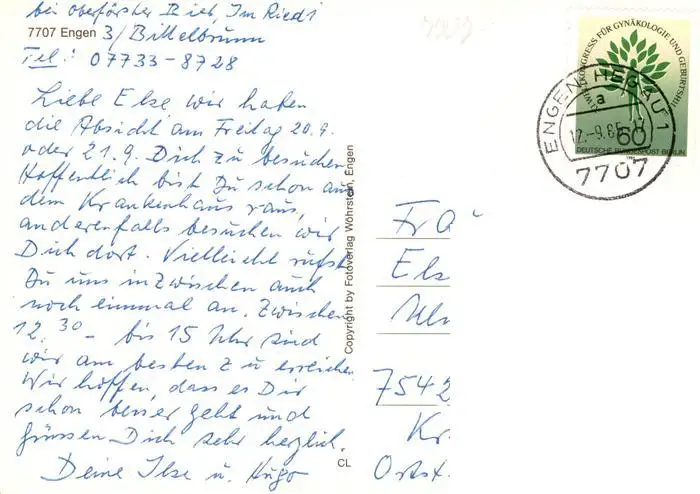 bei Oberförster Bieb, Im Ried 1
7707 Engen 3/Bittelbrunn
Tel.: 07733-8728
Liebe Else wir haben
die Absicht am Freitag 20.9.
oder 21.9. Dich zu besuchen
Hoffentlich bist Du schon aus
dem Krankenhaus raus,
anderenfalls besuchen wir
Dich dort. Vielleicht rufst
Du uns inzwischen auch
noch einmal an. Zwischen
12.30 - bis 15 Uhr sind
wir am besten zu erreichen
Wir hoffen, dass es Dir
schon besser geht und
grüssen Dich sehr herzlich.
Deine Ilse u. Hugo
Copyright by Fotoverlag Wöhrstein, Engen
CL
WELTKONGRESS FÜR GYNÄKOLOGIE UND GEBURTSHILFE
60
DEUTSCHE BUNDESPOST BERLIN
ENGEN, HEGAU 1
a
12.-9.85-17
7707
Fra
Els
7542
Kr.
Ortst.